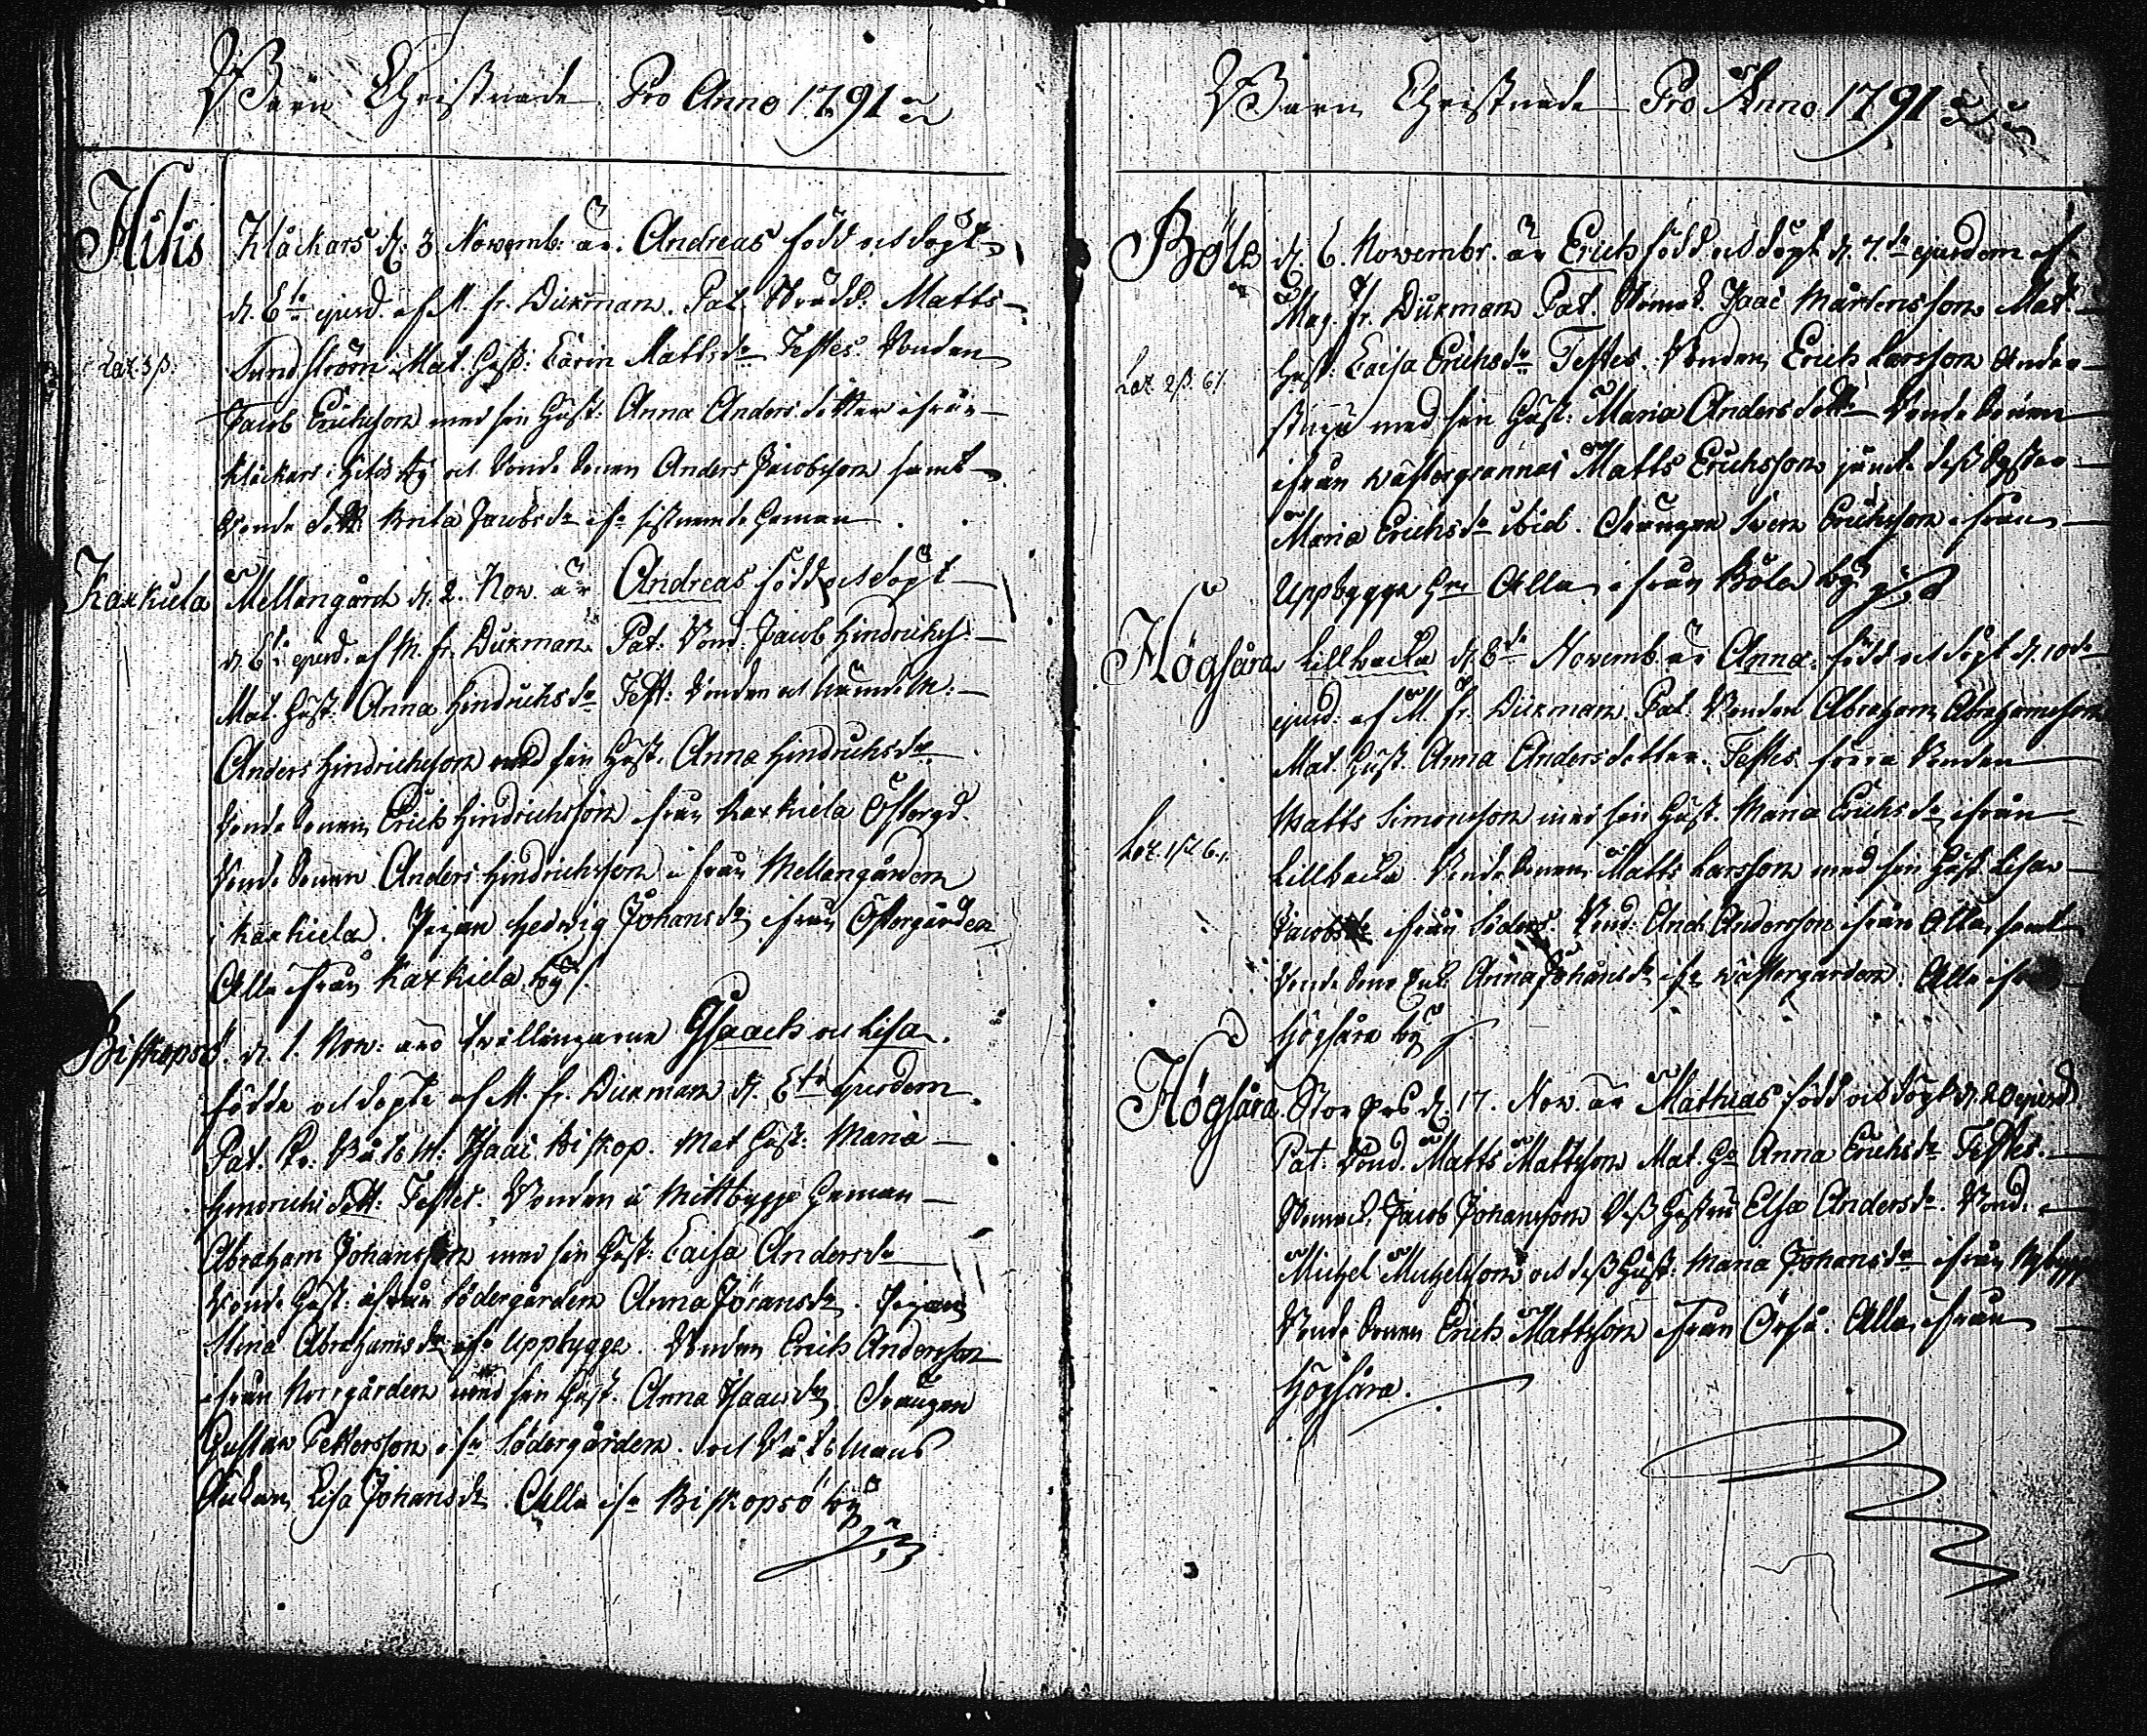 Barn Christnade Pro Anno 1791
Hitis Klåckars d. 3. Novemb: är Andreas född och döpt
d. 6te ejusd. af M. fr. Dickman. Pat. Matts
Sundström Mat. Hust: Carin Mattsdr Testes. Bonden
Jacob Erichsson med sin Hust: Anna Anders dotter ifrån
Klåckars i Hitis by och Bonde Sonen Anders Jacobsson samt
Bonde dott. Jacobsdr
Karkula Mellangård d. 2. Nov. är Andreas född och döpt
d. 6te ejusd. af M. fr. Dickman. Pat. Bond. Jacob Hindrichs:
Mat. Hust: Anna Hindrichsdr Test: Bonden och
Anders Hindrichsson med sin Hust. Anna Hindrichsdr
Bonde Sonen Erich Hindrichsson ifrån Karkula Östergd.
Bonde Sonen Anders Hindrichsson ifrån Mellangården
i Karkula. Pigan Hedvig Johansdr ifrån Östergården
Alla ifrån Karkula by
Biskopsö. d. 1. Nov: äro Twillingarne Isaach och Lisa
födde och döpte af M. fr. Dickman d. 6te ejusdem.
Pat. Isaac Biskop. Mat Hust: Maria
Hendrichs dott: Testes. Bonden å Mittbygge Heman
Abraham Johansson med sin Hust: Caisa Andersdr
Bonde Hust: ifrån Södergården Anna Jöransdr. Pigan
Stina Abrahamsdr ifr Uppbygge. Bonden Erich Andersson
ifrån Norrgården med sin Hust. Anna Isaacsdr. Drängen
Gustav Pettersson ifr Södergården. och Båtsmans
Lisa Johansdr. Alla ifr Biskopsö by
Barn Christnade Pro Anno 1791
Böle d. 6. Novembr. är Erich född och döpt d. 7de ejusdem af
Mag. fr. Dickman Pat. Isaac Mårtensson Mat.
Hust: Caisa Erichsdr Testes. Bonden Erich Larsson
med sin Hust: Maria Anders dottr Bonde Sonen
ifrån Wästergrannas Matts Erichsson jämte dess Syster
Maria Erichsdr ibid. Drängen Sven Erichsson ifrån
Uppbygge Alla ifrån Böle by
Högsåra Lillbacka d. 8de Novemb. är Anna född och döpt d. 10de
ejusd. af M. fr. Dickman Pat. Bonden Abraham Abrahamsson
Mat. Hust. Anna Anders dotter. Testes Bonden
Matts Simonsson med sin Hust. Maria Erichsdr ifrån
Lillbacka. Bonde Sonen Matts Larsson med sin Hust Lisa
Jacobsdr ifrån Söders. Bond: And: Andersson ifrån samt
Bonde Anna Johansdr ifr Wästergården. Alla ifr
Högsåra by
Högsåra. d. 17. Nov. är Mathias född och döpt d. 20 ejusd.
Pat. Bond. Matts Mattsson Mat. Anna Erichsdr Testes.
Jacob Johansson Dess Hustru Elsa Andersdr. Bond.
Michel Michelsson och dess Hust: Maria Johansdr ifrån
Bonde Sonen Erich Mattsson ifrån Alla ifrån
Högsåra.